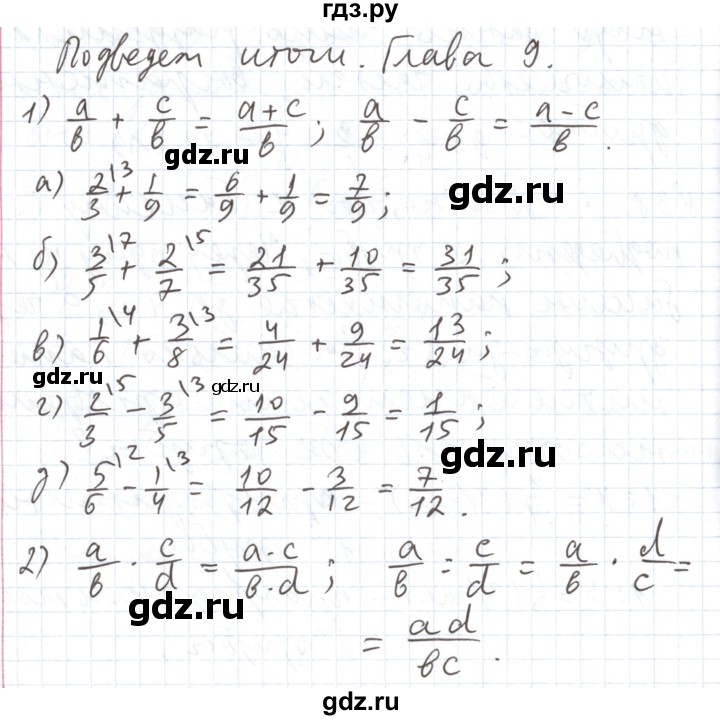 гдз.ру
Подведем итоги. Глава 9.
1) a/в + c/в = a+c/в; a/в - c/в = a-c/в.
gdz.ru
а) 2/3\3 + 1/9 = 6/9 + 1/9 = 7/9;
gdz.ru
б) 3/5\7 + 2/7\5 = 21/35 + 10/35 = 31/35;
в) 1/6\4 + 3/8\3 = 4/24 + 9/24 = 13/24;
gdz.ru
gdz.ru
г) 2/3\5 - 3/5\3 = 10/15 - 9/15 = 1/15;
gdz.ru
д) 5/6\2 - 1/4\3 = 10/12 - 3/12 = 7/12.
2) a/в · c/d = a·c/в·d; a/в : c/d = a/в · d/c =
gdz.ru
= ad/вc.
gdz.ru